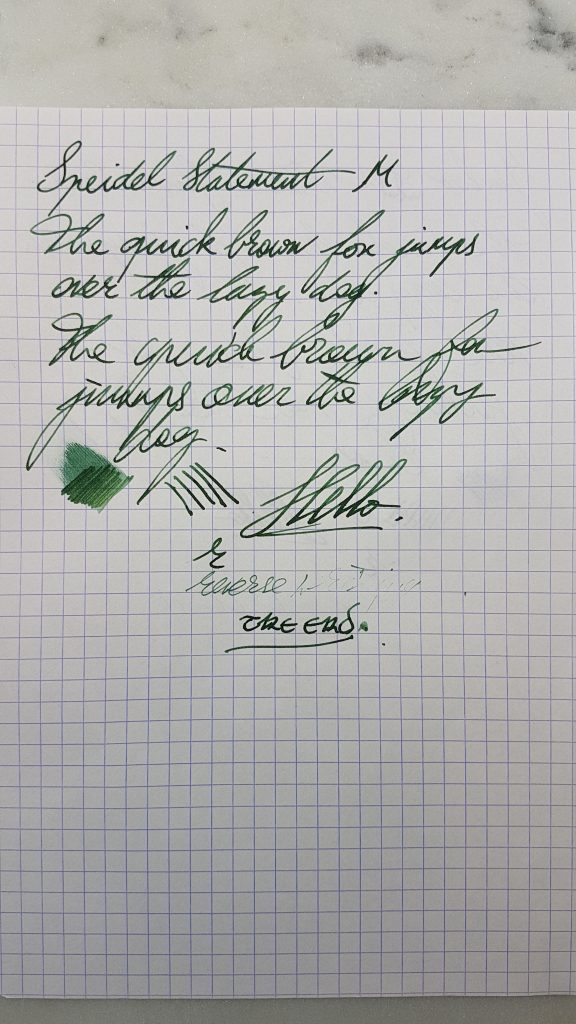 Speidel Statement M
The quick brown fox jumps
over the lazy dog.
The quick brown fox
jumps over the lazy
dog.
Hello.
r
reverse
THE END.